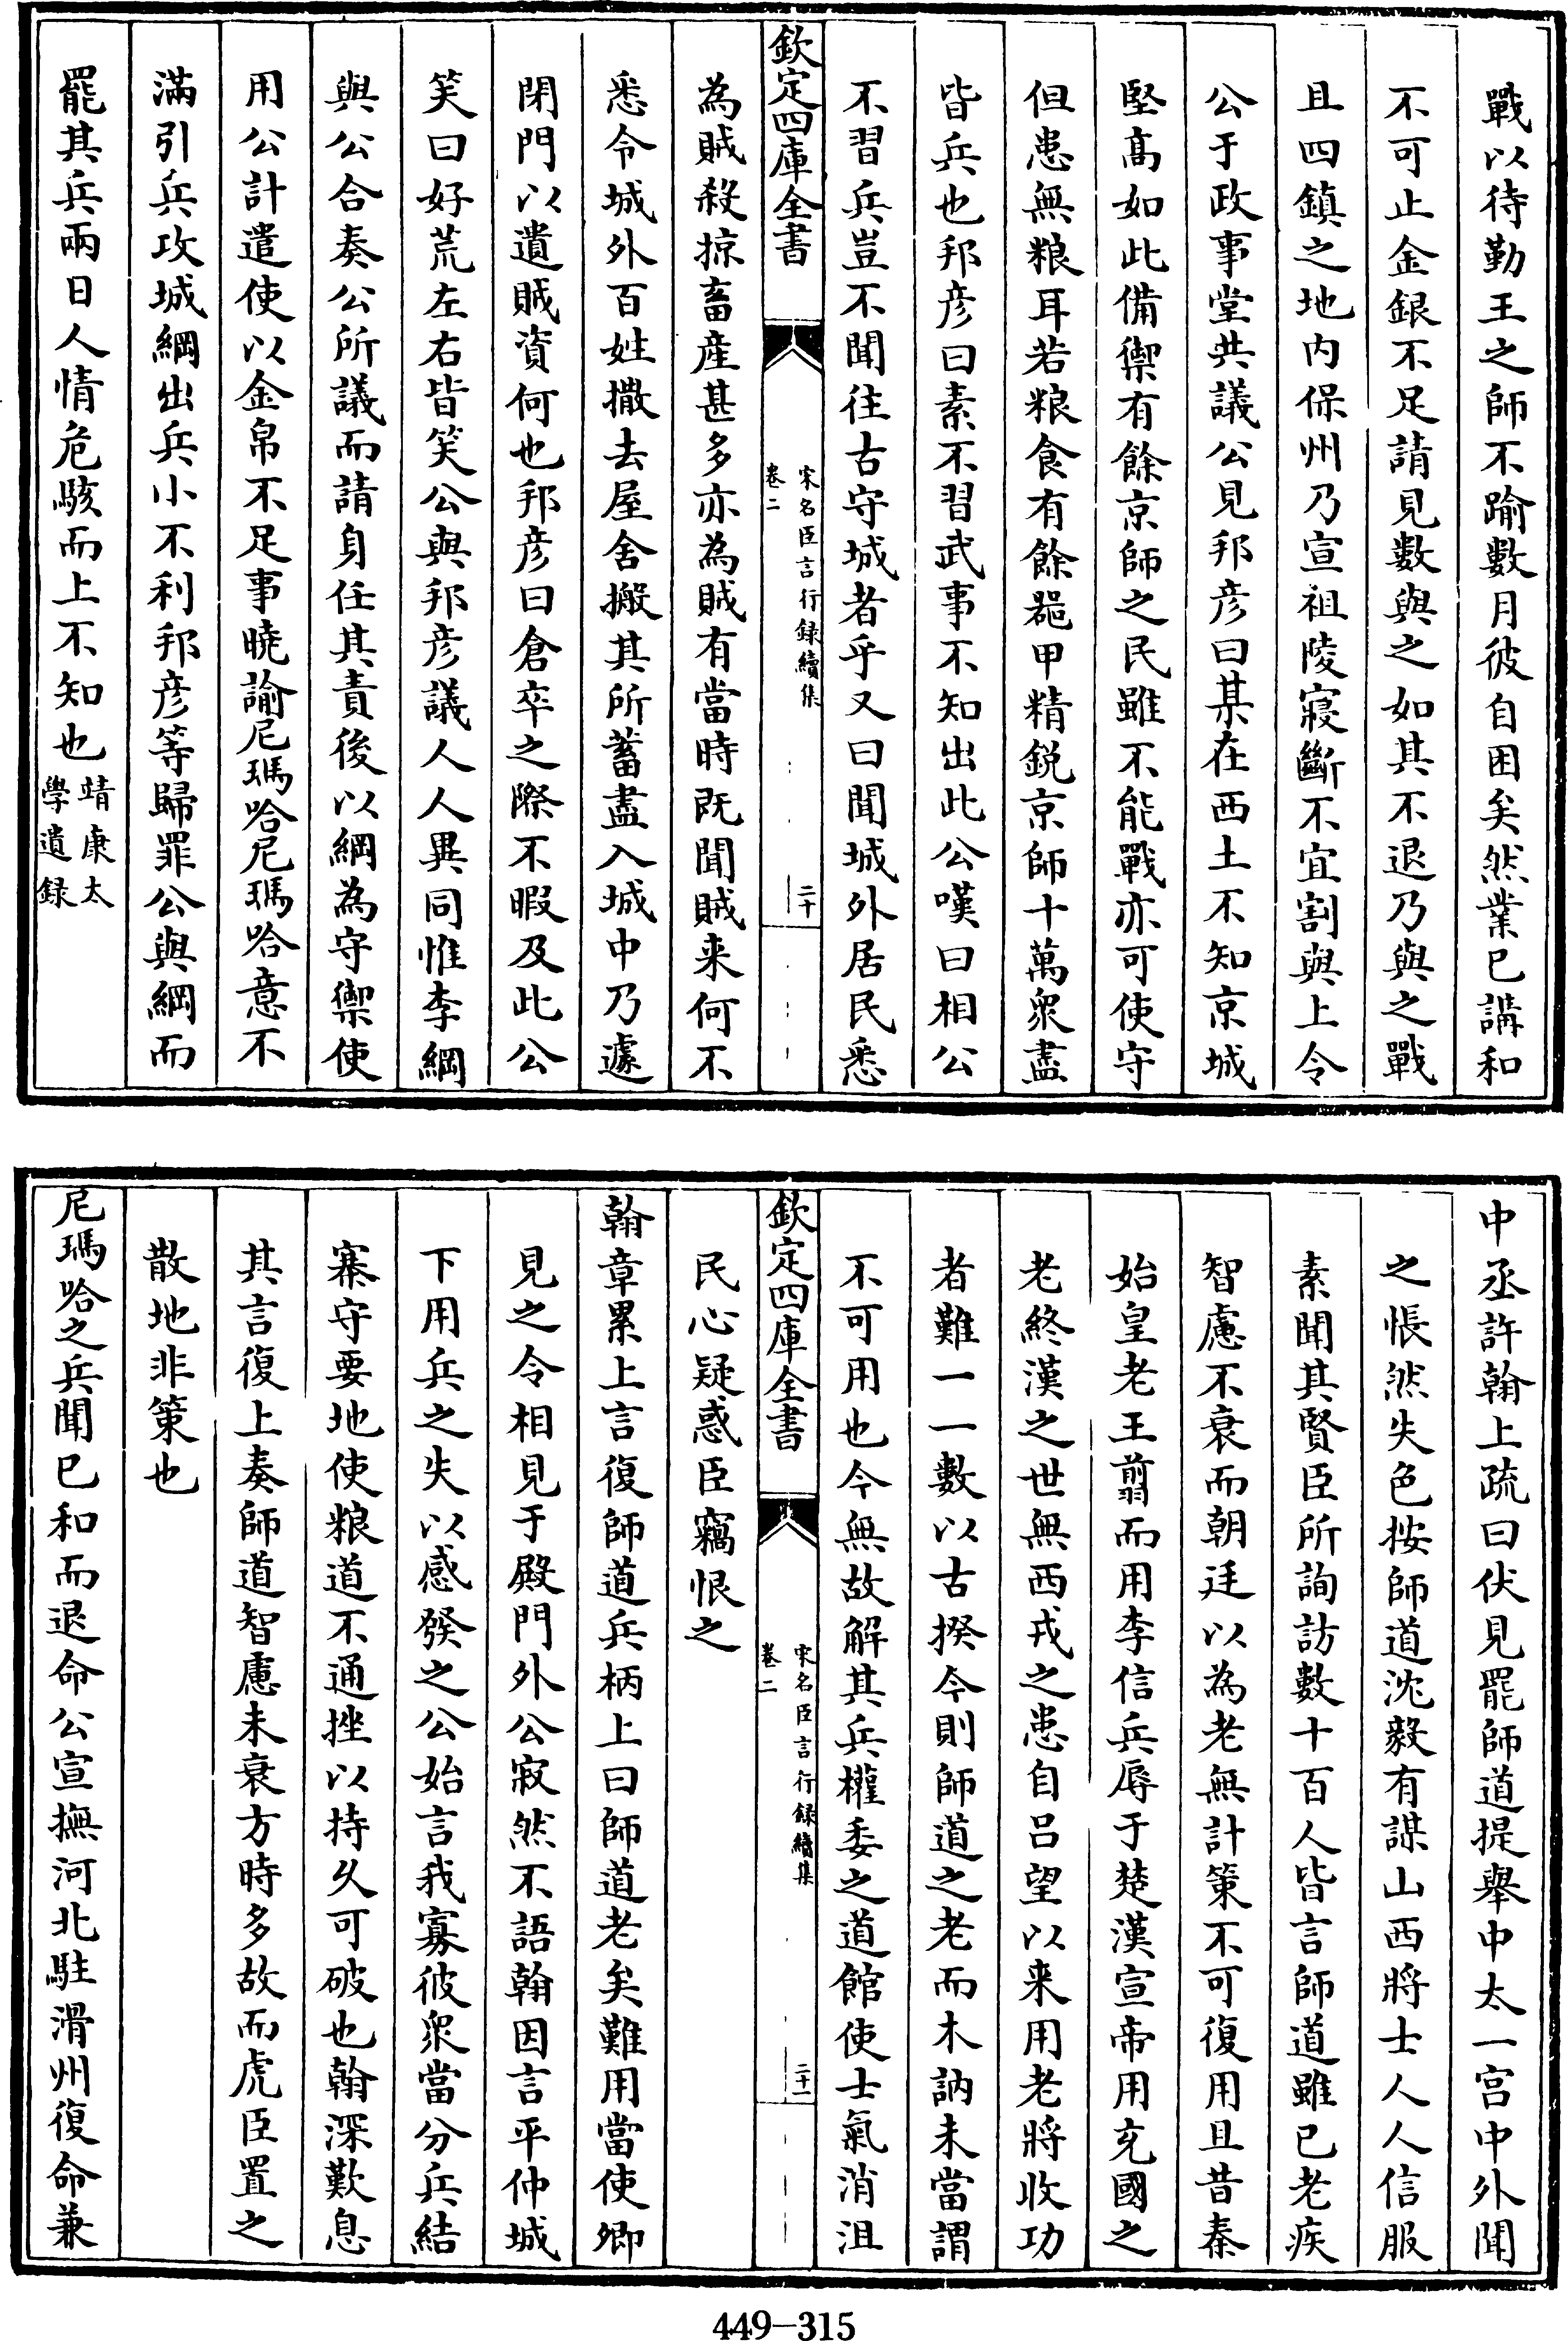 戰以待勤王之師不踰數月彼自困矣然業已講和
不可止金銀不足請見數與之如其不退乃與之戰
且四鎮之地内保州乃宣祖陵寢斷不宜割與上令
公于政事堂共議公見邦彦曰某在西土不知京城
堅髙如此備禦有餘京師之民雖不能戰亦可使守
但患無粮耳若粮食有餘噐甲精鋭京師十萬衆盡
皆兵也邦彦曰素不習武事不知出此公嘆曰相公
不習兵豈不聞往古守城者乎又曰聞城外居民悉
欽定四庫全書
宋名臣言行録續集
卷二
二十
為賊殺掠畜産甚多亦為賊有當時既聞賊来何不
悉令城外百姓撒去屋舍搬其所蓄盡入城中乃遽
閉門以遺賊資何也邦彦曰倉卒之際不暇及此公
笑曰好荒左右皆笑公與邦彦議人人異同惟李綱
與公合奏公所議而請身任其責後以綱為守禦使
用公計遣使以金帛不足事曉諭尼瑪哈尼瑪哈意不
滿引兵攻城綱出兵小不利邦彦等歸罪公與綱而
罷其兵兩日人情危駭而上不知也靖康太
學遺録
中丞許翰上疏曰伏見罷師道提舉中太一宫中外聞
之悵然失色按師道沈毅有謀山西將士人人信服
素聞其賢臣所詢訪數十百人皆言師道雖已老疾
智慮不衰而朝廷以為老無計策不可復用且昔秦
始皇老王翦而用李信兵辱于楚漢宣帝用充國之
老終漢之世無西戎之患自吕望以来用老將收功
者難一一數以古揆今則師道之老而木訥未當謂
不可用也今無故解其兵權委之道館使士氣消沮
欽定四庫全書
宋名臣言行録續集
卷二
二十一
民心疑惑臣竊恨之
翰章累上言復師道兵柄上曰師道老矣難用當使卿
見之令相見于殿門外公寂然不語翰因言平仲城
下用兵之失以感發之公始言我寡彼衆當分兵結
寨守要地使粮道不通挫以持久可破也翰深歎息
其言復上奏師道智慮未衰方時多故而虎臣置之
散地非策也
尼瑪哈之兵聞已和而退命公宣撫河北駐滑州復命兼
449-315